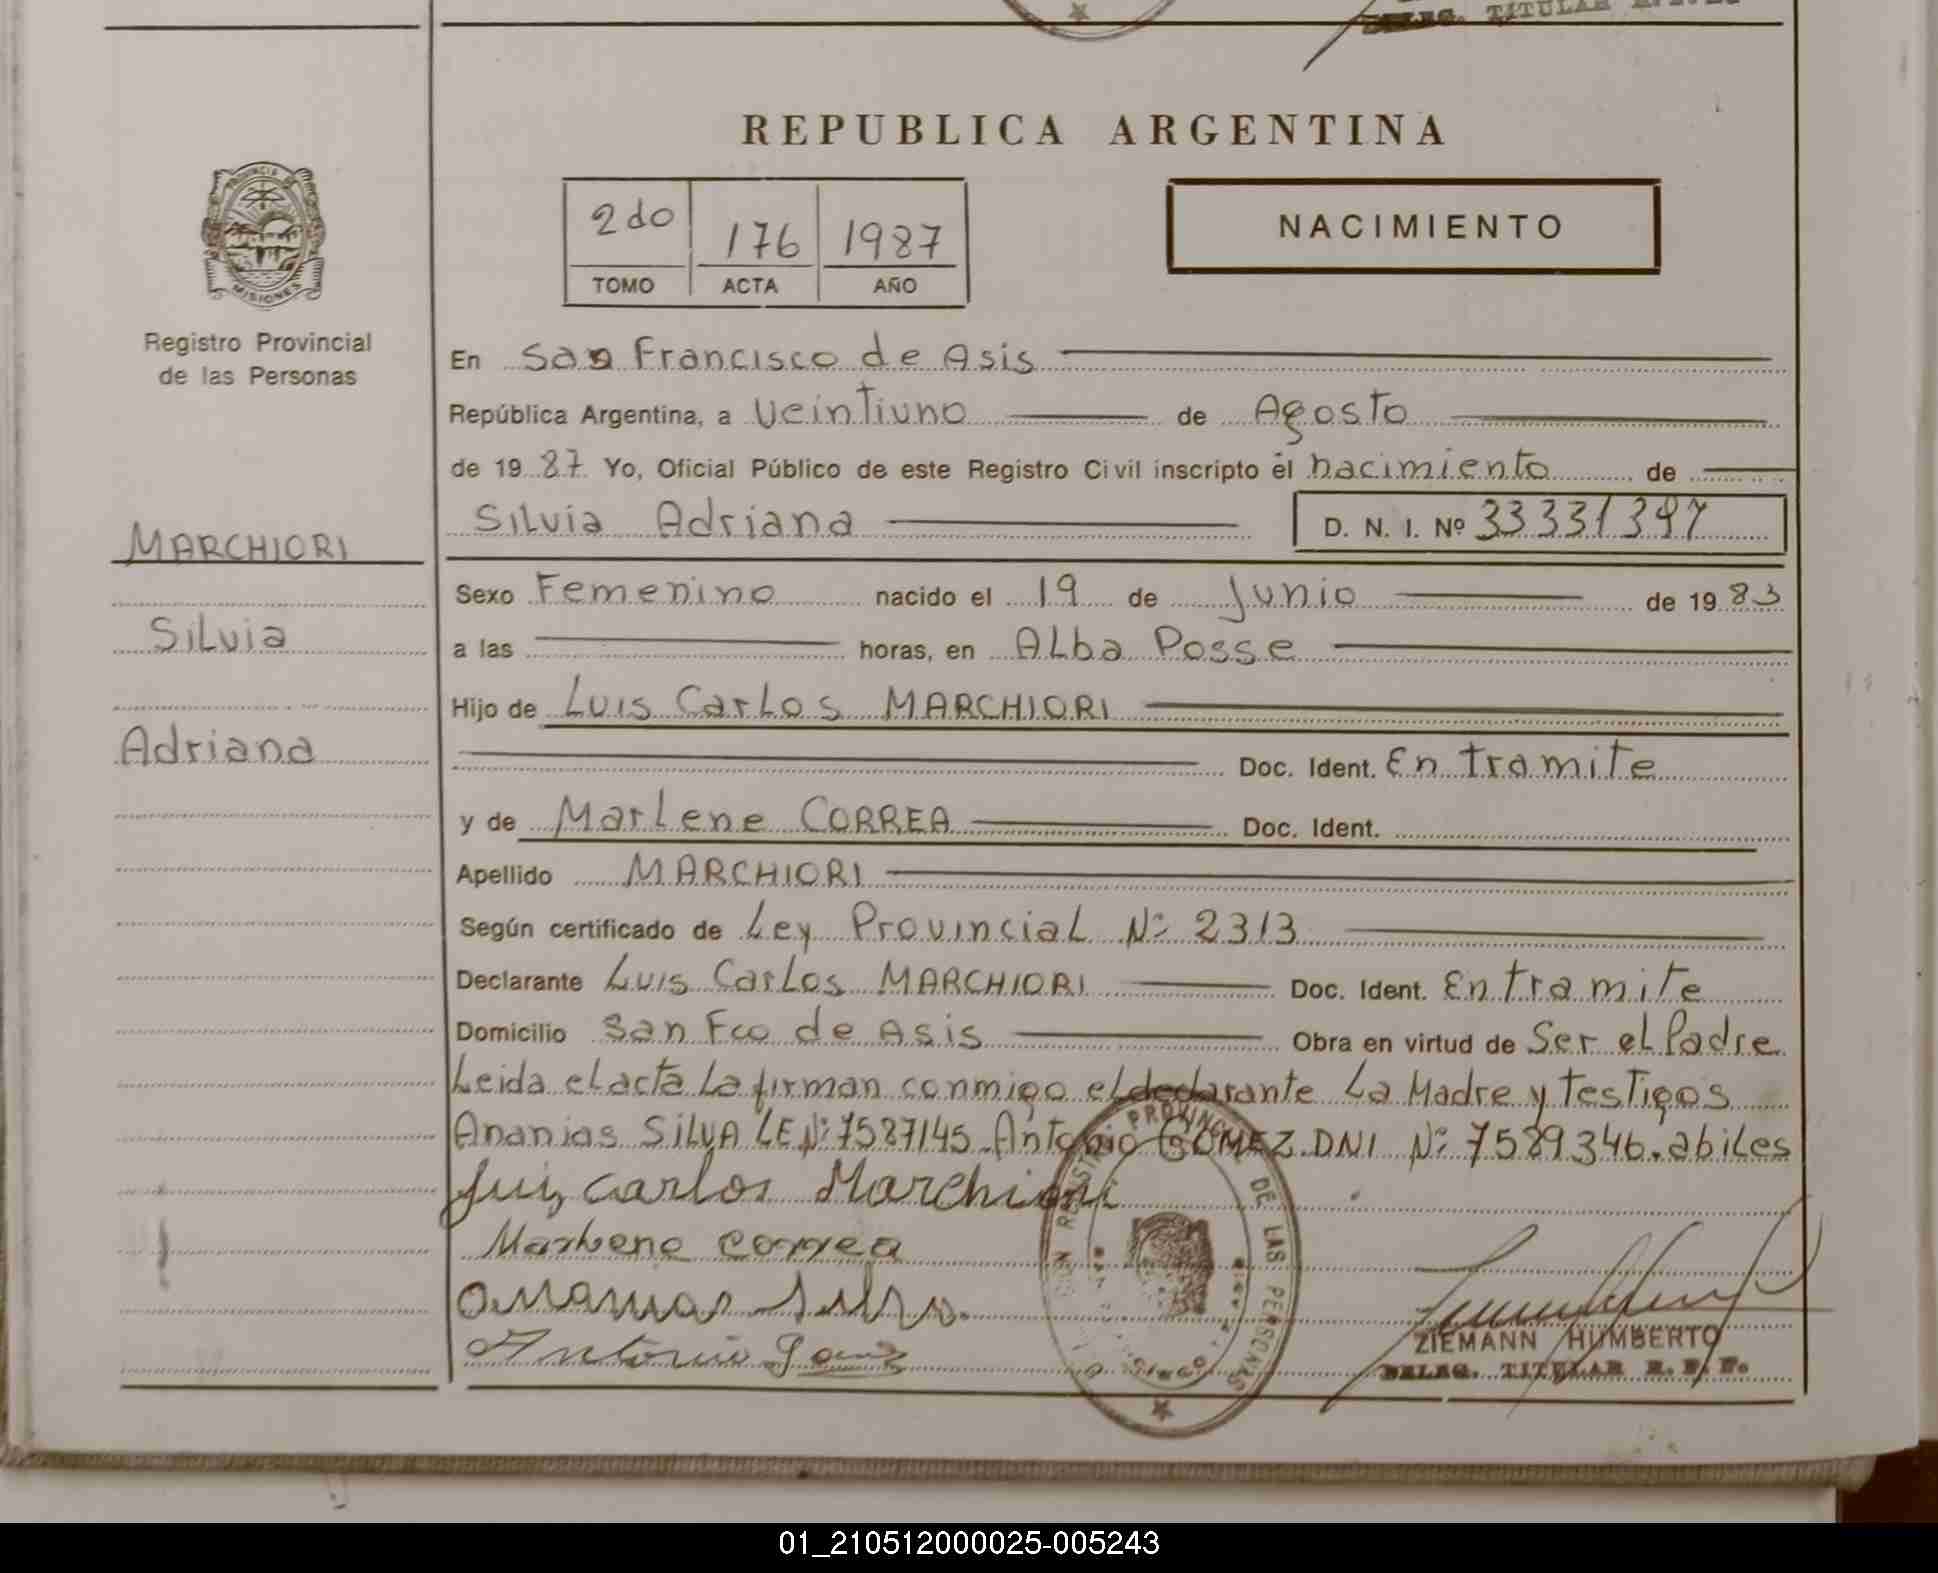 DELEG. TITULAR R.P.P.
REPUBLICA ARGENTINA
2do 176 1987
TOMO ACTA AÑO
NACIMIENTO
PROVINCIA DE
MISIONES
Registro Provincial
de las Personas
MARCHIORI
Silvia
Adriana
En San Francisco de Asis
República Argentina, a veintiuno de Agosto
de 1987 Yo, Oficial Público de este Registro Civil inscripto el nacimiento de
Silvia Adriana D. N. I. Nº 33331397
Sexo Femenino nacido el 19 de Junio de 1983
a las horas, en Alba Posse
Hijo de Luis Carlos MARCHIORI
Doc. Ident. En tramite
y de Marlene CORREA Doc. Ident.
Apellido MARCHIORI
Según certificado de Ley Provincial Nº 2313
Declarante Luis Carlos MARCHIORI Doc. Ident. En tramite
Domicilio San Fco de Asis Obra en virtud de Ser el Padre
Leida el acta la firman conmigo el declarante La Madre y testigos
Ananias SILVA LE Nº 7587145. Antonio GOMEZ. DNI Nº 7589346. abiles
Luiz Carlos Marchiori
Marlene Correa
Ananias Silva.
Antonio Gomez
REGISTRO PROVINCIAL DE LAS PERSONAS
ZIEMANN HUMBERTO
DELEG. TITULAR R. P. P.
01_210512000025-005243